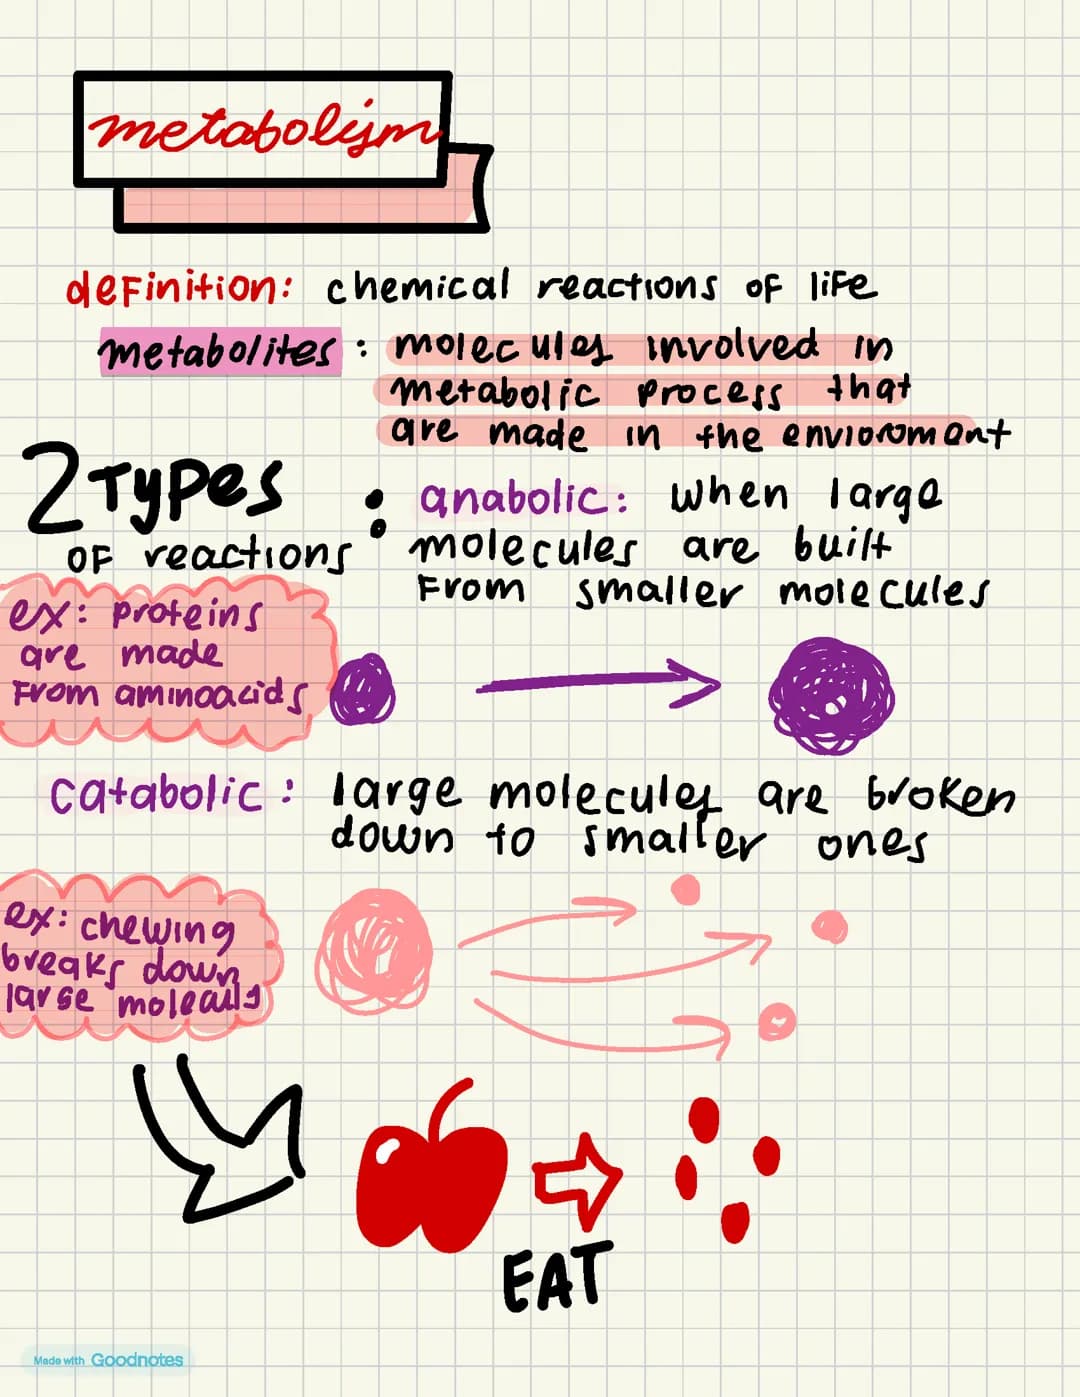 metabolism
definition: chemical reactions of life
metabolites: molecules involved in
metabolic process that
are made in the envioroment
2 Types
of reactions
: anabolic: when large
molecules are built
from smaller molecules
ex: proteins
are made
from aminoacids
catabolic: large molecules are broken
down to smaller ones
ex: chewing
breaks down
large molecules
EAT
Made with Goodnotes